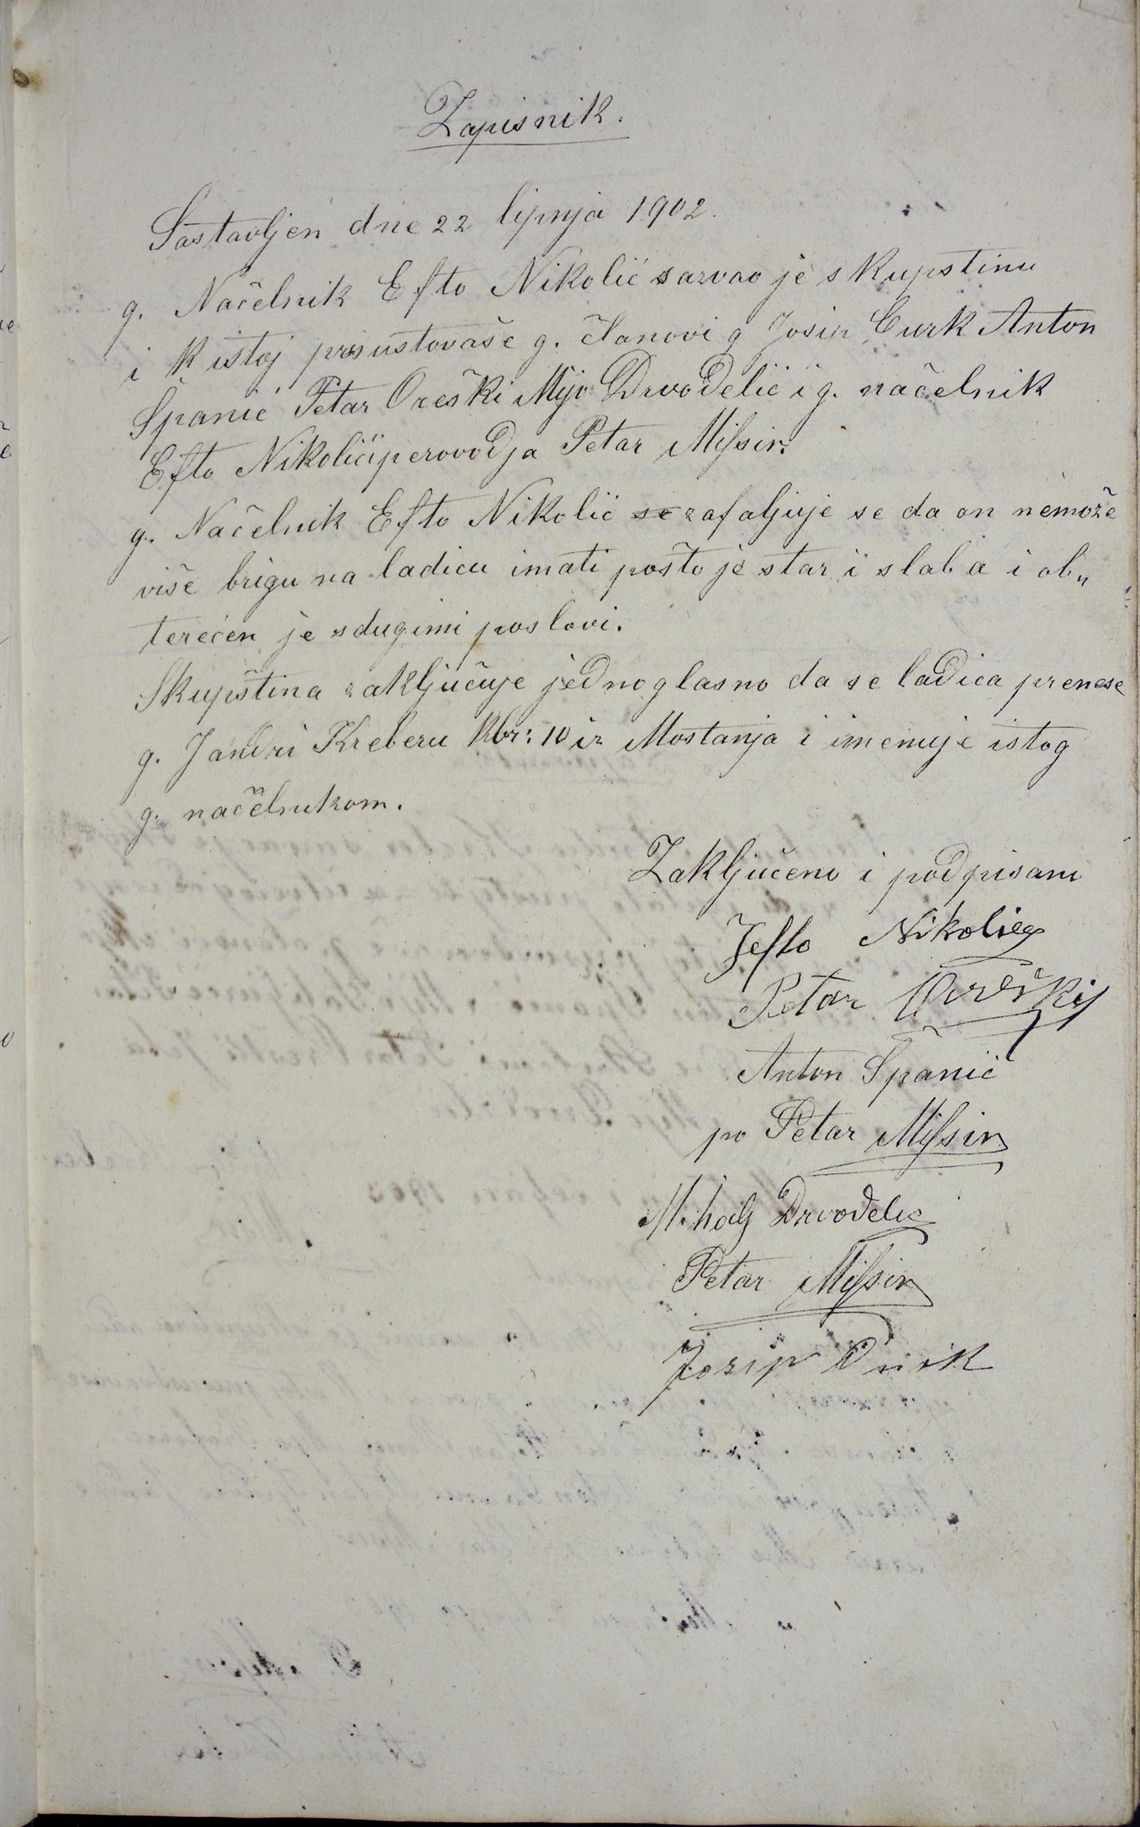 Zapisnik.
Sastavljen dne 22 lipnja 1902.
g. Načelnik Efto Nikolić sazvao je skupstinu
i k istoj prisustovaše g. članovi g Josip Curk Anton
Španić Petar Oreški Mijo Drvođelić i g. načelnik
Efto Nikolić i perovodja Petar Missin.
g. Načelnik Efto Nikolić se zafaljuje se da on nemože
više brigu na ladicu imati pošto je star i slab a i ob„
terećen je sdugimi poslovi.
Skupština zaključuje jednoglasno da se ladica prenese
g. Jandri Kreberu Kbr: 10 iz Mostanja i imenuje istog
g. načelnikom.
Zaključeno i podpisani
Jefto Nikolić
Petar Oreški
Anton Španić
po Petar Missin
Mihalj Drvođelić
Petar Missin
Josip Curk